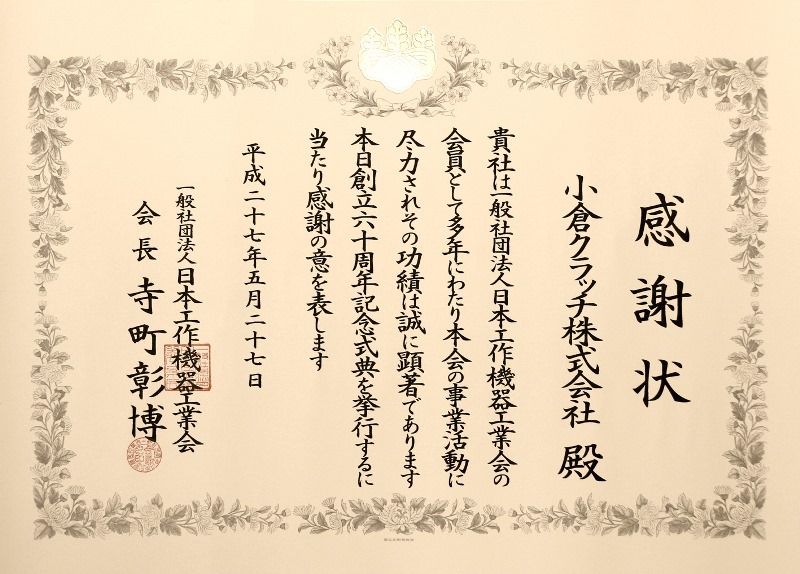 感謝状
小倉クラッチ株式会社 殿
貴社は一般社団法人日本工作機器工業会の
会員として多年にわたり本会の事業活動に
尽力されその功績は誠に顕著であります
本日創立六十周年記念式典を挙行するに
当たり感謝の意を表します
平成二十七年五月二十七日
一般社団法人日本工作機器工業会
会長 寺町彰博